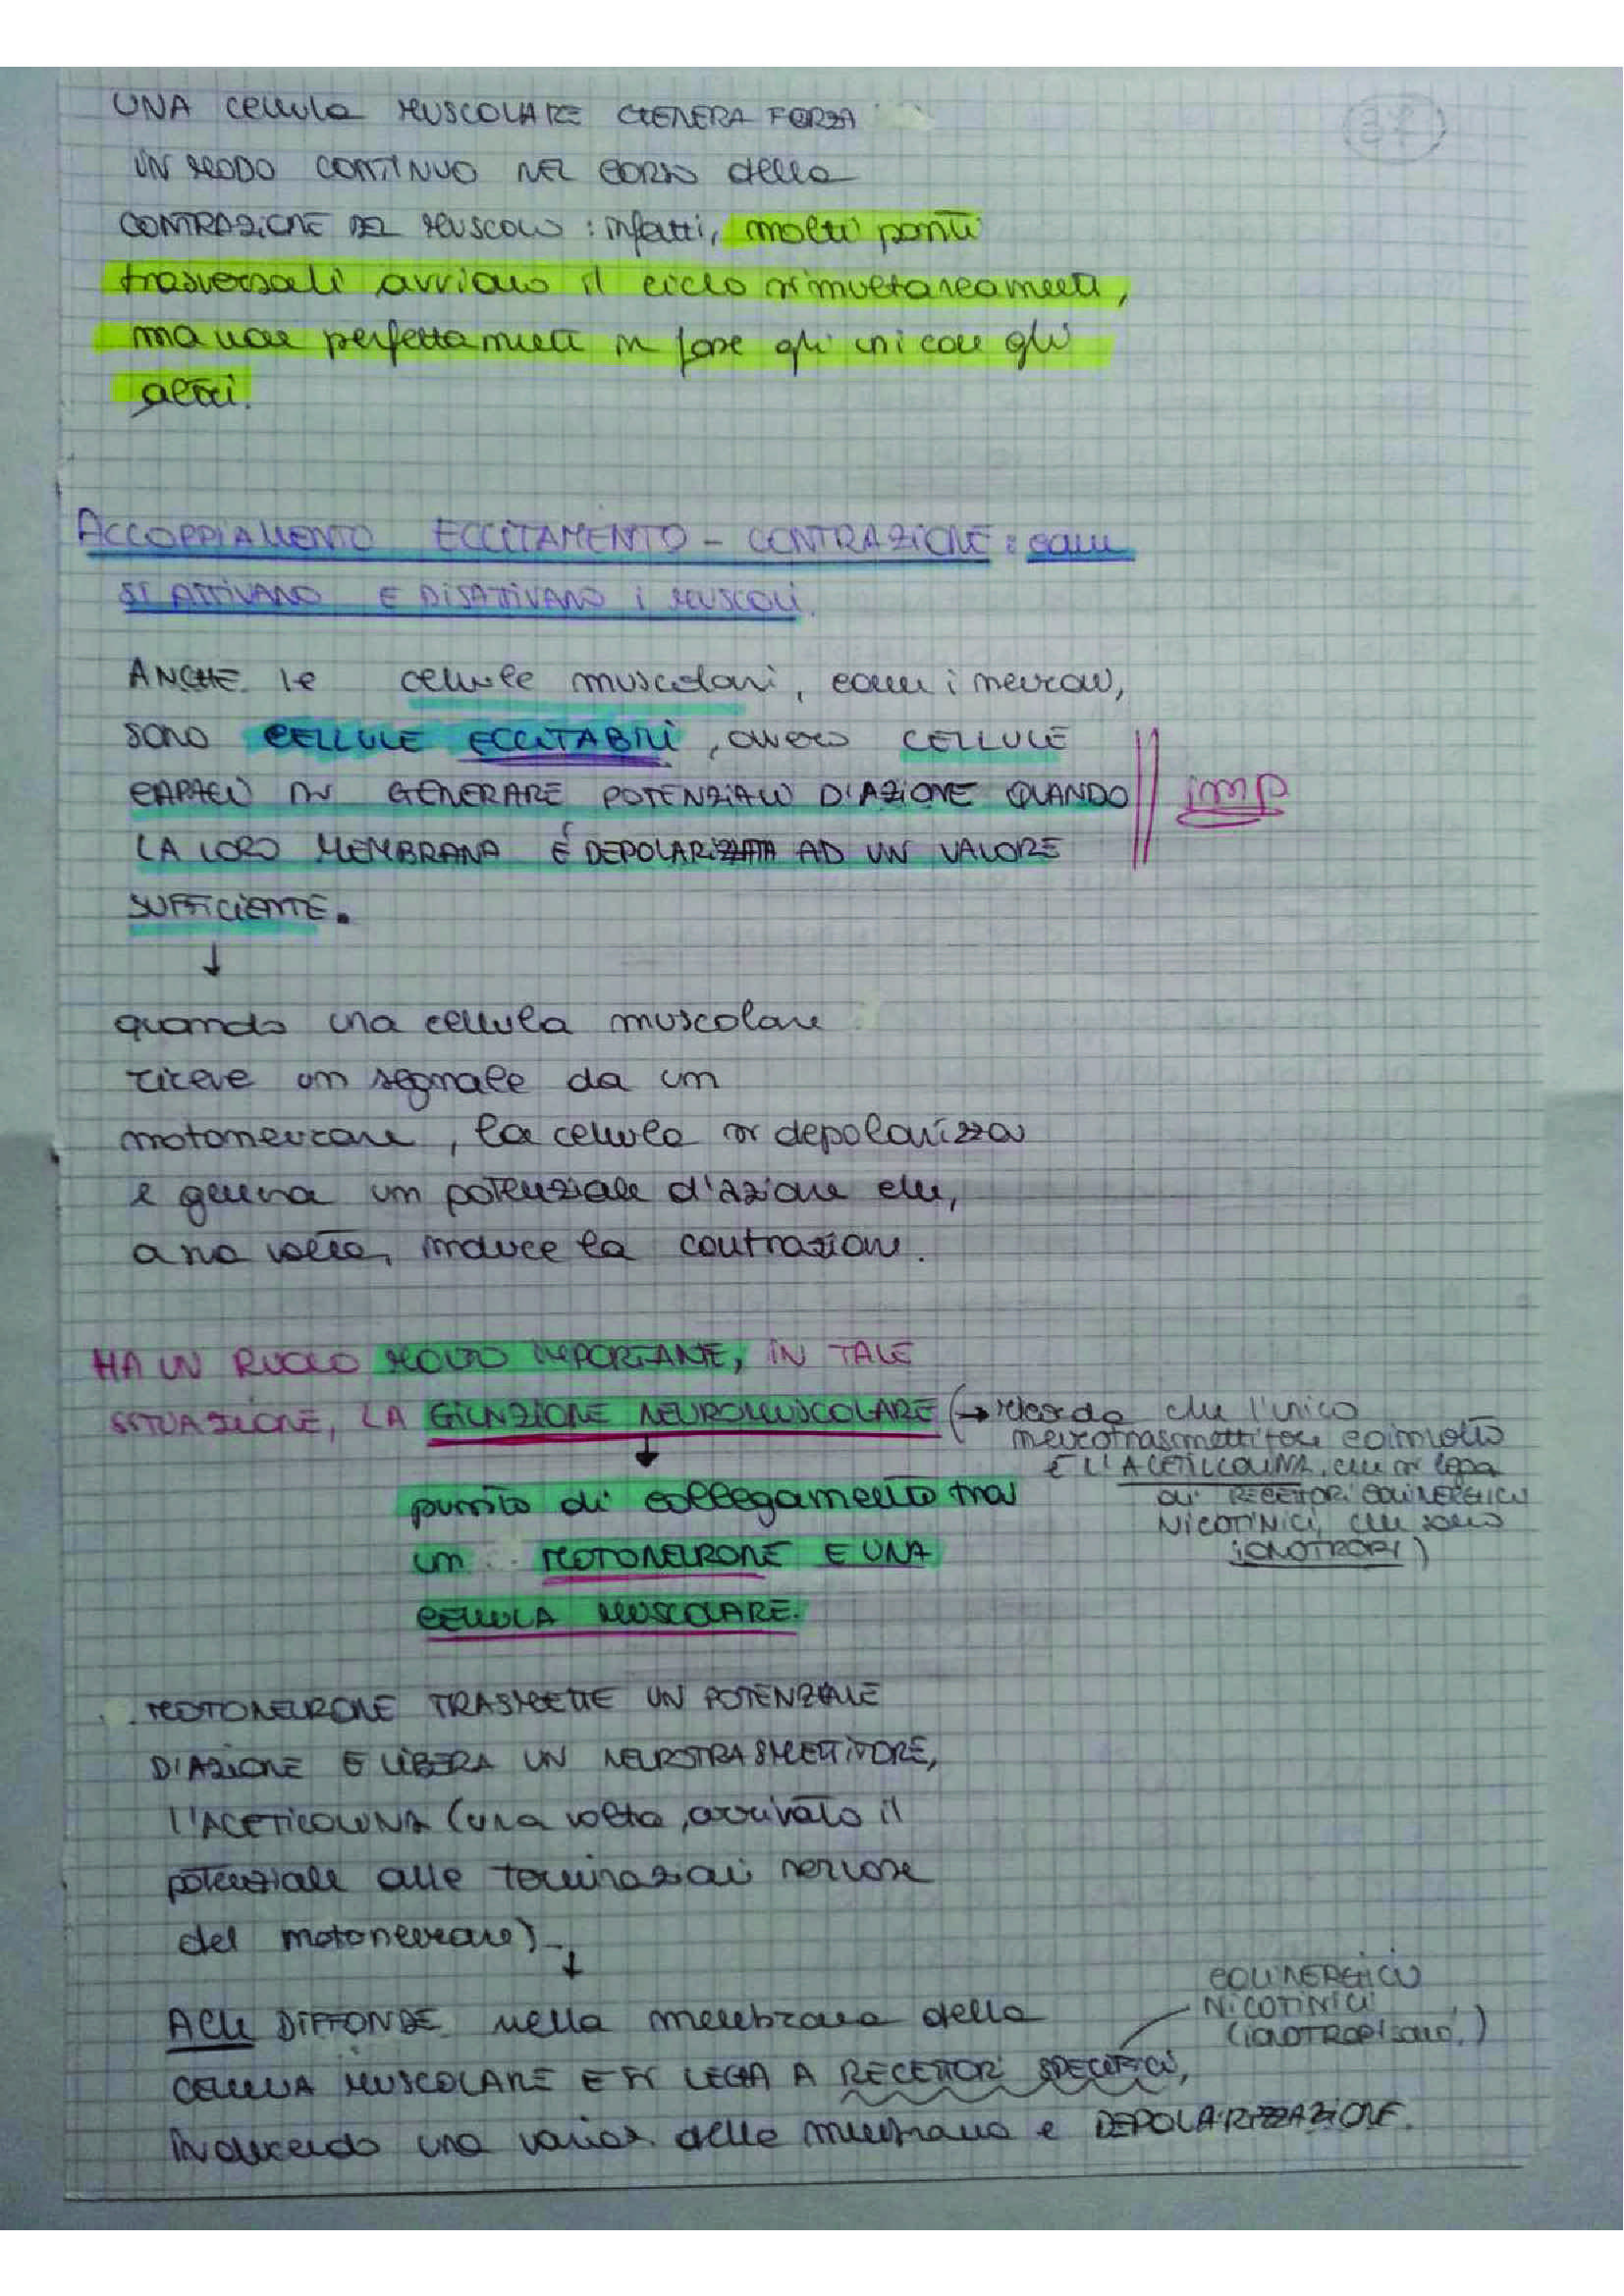 37
UNA cellula MUSCOLARE GENERA FORZA
IN MODO CONTINUO NEL CORSO della
CONTRAZIONE DEL MUSCOLO : infatti, molti ponti
trasversali avviano il ciclo simultaneamente,
ma non perfettamente in fase gli uni con gli
altri.
ACCOPPIAMENTO ECCITAMENTO - CONTRAZIONE : come
SI ATTIVANO E DISATTIVANO i MUSCOLI.
ANCHE le cellule muscolari, come i neuroni,
SONO CELLULE ECCITABILI, ovvero CELLULE
CAPACI DI GENERARE POTENZIALI D'AZIONE QUANDO
LA LORO MEMBRANA È DEPOLARIZZATA AD UN VALORE
SUFFICIENTE.
imp
↓
quando una cellula muscolare
riceve un segnale da un
motoneurone, la cellula si depolarizza
e genera un potenziale d'azione che,
a sua volta, induce la contrazione.
HA UN RUOLO MOLTO IMPORTANTE, IN TALE
SITUAZIONE, LA GIUNZIONE NEUROMUSCOLARE (→ ricorda che l'unico
neurotrasmettitore coinvolto
è L'ACETILCOLINA, che si lega
ai RECETTORI COLINERGICI
NICOTINICI, che sono
IONOTROPI)
↓
punto di collegamento tra
un MOTONEURONE E UNA
CELLULA MUSCOLARE.
MOTONEURONE TRASMETTE UN POTENZIALE
D'AZIONE E LIBERA UN NEUROTRASMETTITORE,
L'ACETICOLINA (una volta, arrivato il
potenziale alle terminazioni nervose
del motoneurone)
↓
ACh DIFFONDE nella membrana della
CELLULA MUSCOLARE E SI LEGA A RECETTORI SPECIFICI,
COLINERGICI
NICOTINICI
(IONOTROPI sono)
inducendo una varias. della membrana e DEPOLARIZZAZIONE.